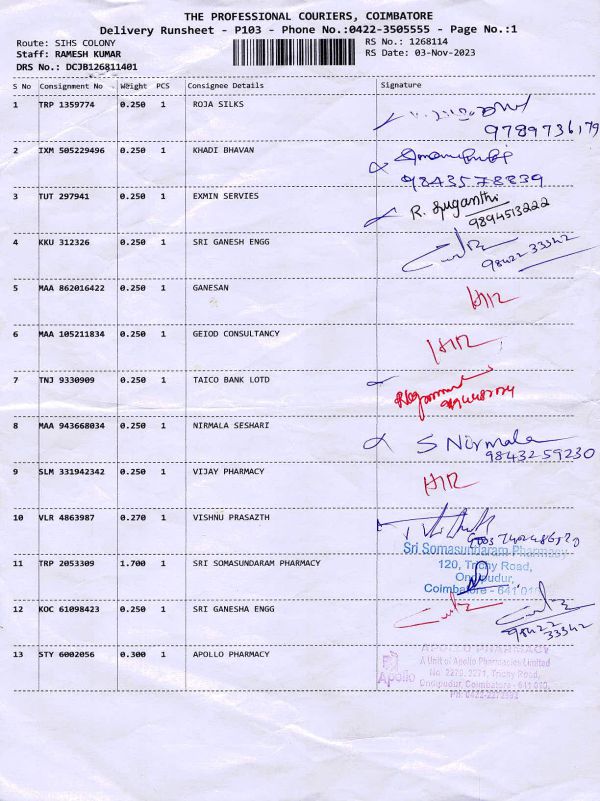 THE PROFESSIONAL COURIERS, COIMBATORE
Delivery Runsheet - P103 - Phone No.:0422-3505555 - Page No.:1
Route: SIHS COLONY RS No.: 1268114
Staff: RAMESH KUMAR RS Date: 03-Nov-2023
DRS No.: DCJB126811401
S No Consignment No Weight PCS Consignee Details Signature
1 TRP 1359774 0.250 1 ROJA SILKS
9789736179
2 IXM 505229496 0.250 1 KHADI BHAVAN
98435 78839
3 TUT 297941 0.250 1 EXMIN SERVIES R. Suganthi
9894513222
4 KKU 312326 0.250 1 SRI GANESH ENGG
98422 33342
5 MAA 862016422 0.250 1 GANESAN
6 MAA 105211834 0.250 1 GEIOD CONSULTANCY
7 TNJ 9330909 0.250 1 TAICO BANK LOTD
8 MAA 943668034 0.250 1 NIRMALA SESHARI S Nirmala
98432 59230
9 SLM 331942342 0.250 1 VIJAY PHARMACY
10 VLR 4863987 0.270 1 VISHNU PRASAZTH
Sri Somasundaram Pharmacy
11 TRP 2053309 1.700 1 SRI SOMASUNDARAM PHARMACY 120, Trichy Road,
Ondipudur,
Coimbatore - 641 01
12 KOC 61098423 0.250 1 SRI GANESHA ENGG
98422
33342
13 STY 6002056 0.300 1 APOLLO PHARMACY APOLLO PHARMACY
A Unit of Apollo Pharmacies Limited
Apollo No: 2270, 2271, Trichy Road,
Ondipudur, Coimbatore - 641 016,